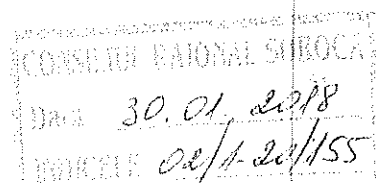 CONSILIUL RAIONAL SOROCA
Data 30.01.2018
INDICELE 02/1-20/155